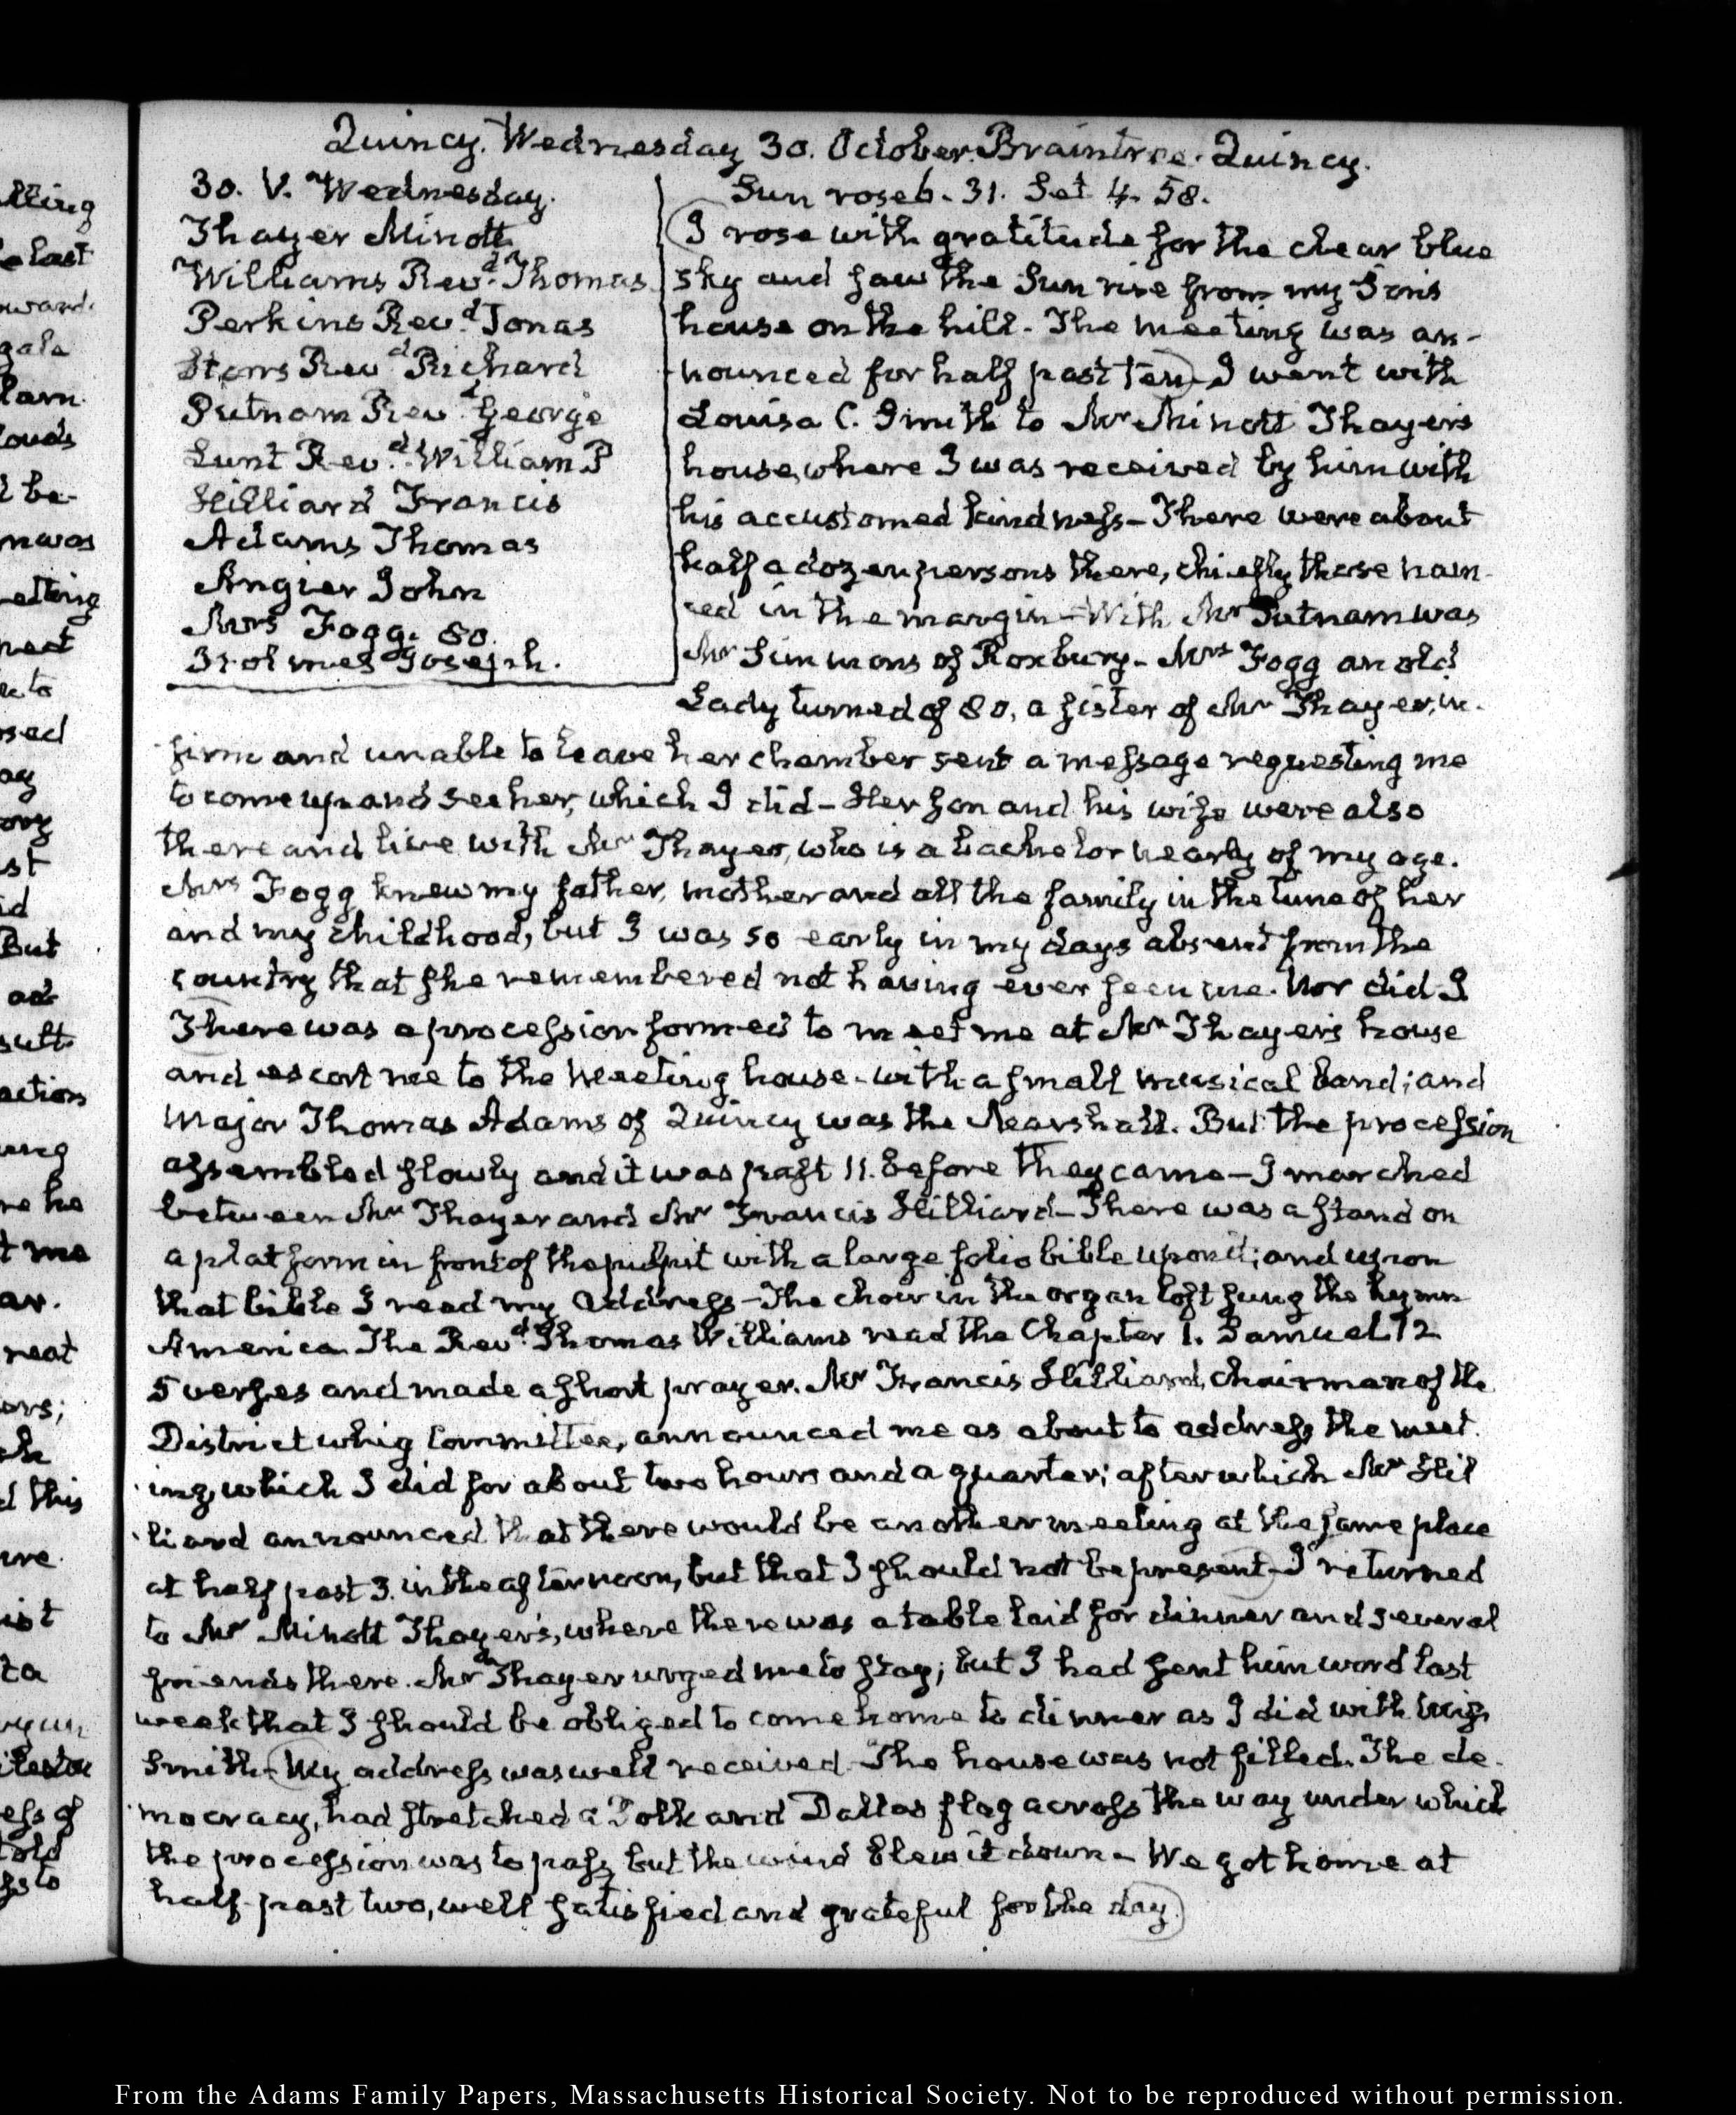 Quincy. Wednesday 30. October. Braintree. Quincy.
30. V. Wednesday.
Thayer Minott
Williams Revd. Thomas
Perkins Revd. Jonas
Storrs Revd Richard
Putnam Revd. George
Lunt Revd. William P
Hilliard Francis
Adams Thomas
Angier John
Mrs Fogg. 80.
Holmes Joseph.
Sun rose 6. 31. Set 4. 58.
I rose with gratitude for the clear blue
sky and saw the Sun rise from my Son's
house on the hill. The meeting was an-
nounced for half past ten. I went with
Louisa C. Smith to Mr Minott Thayer's
house, where I was received by him with
his accustomed kindness— There were about
half a dozen persons there, chiefly those nam-
ed in the margin— With Mr Putnam was
Mr Simmons of Roxbury— Mrs Fogg an old
Lady turned of 80, a sister of Mr Thayer, in-
firm and unable to leave her chamber sent a message requesting me
to come up and see her, which I did— Her son and his wife were also
there and live with Mr Thayer, who is a bachelor nearly of my age.
Mrs Fogg knew my father, mother and all the family in the time of her
and my childhood, but I was so early in my days absent from the
country that she remembered not having ever seen me. Nor did I
There was a procession formed to meet me at Mr Thayer's house
and escort me to the Meeting house. with a small musical band; and
Major Thomas Adams of Quincy was the Marshall. But the procession
assembled slowly and it was past 11. before they came— I marched
between Mr Thayer and Mr Francis Hilliard— There was a stand on
a platform in front of the pulpit with a large folio bible upon it; and upon
that bible I read my Address— The choir in the organ loft sung the hymn
America. The Revd. Thomas Williams read the Chapter 1. Samuel 12
5 verses and made a short prayer. Mr Francis Hilliard, chairman of the
District whig Committee, announced me as about to address the meet-
ing, which I did for about two hours and a quarter; after which Mr Hil
liard announced that there would be another meeting at the same place
at half past 3. in the afternoon, but that I should not be present— I returned
to Mr Minott Thayer's, where there was a table laid for dinner and several
friends there. Mr Thayer urged me to stay; but I had sent him word last
week that I should be obliged to come home to dinner as I did with
Smith— My address was well received. The house was not filled. The de-
mocracy, had stretched a Polk and Dallas flag across the way under which
the procession was to pass, but the wind blew it down— We got home at
half past two, well satisfied and grateful for the day.
From the Adams Family Papers, Massachusetts Historical Society. Not to be reproduced without permission.